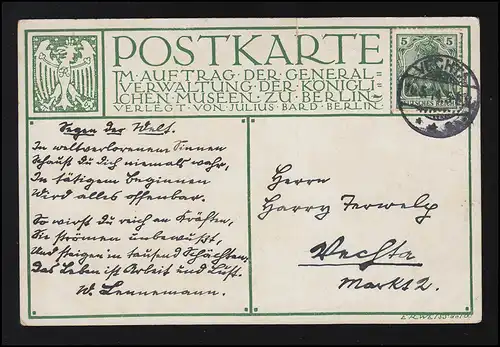 POSTKARTE
IM·AUFTRAG·DER·GENERAL=
VERWALTUNG·DER·KÖNIGLI=
CHEN·MUSEEN·ZU·BERLIN=
VERLEGT·VON·JULIUS·BARD·BERLIN·
5 5
VECHTA
Segen der Welt.
In weltverlorenem Sinnen
Schaust Du Dich niemals wahr,
In tätigem Beginnen
Wird alles offenbar.
So wirst Du reich an Kräften,
Sie strömen unbewußt,
Und steigen in tausend Schächten:
Das Leben ist Arbeit und Lust.
W. Lennemann.
Herrn
Harry Terwelp
Vechta
Markt 2.
E.R.WEISS